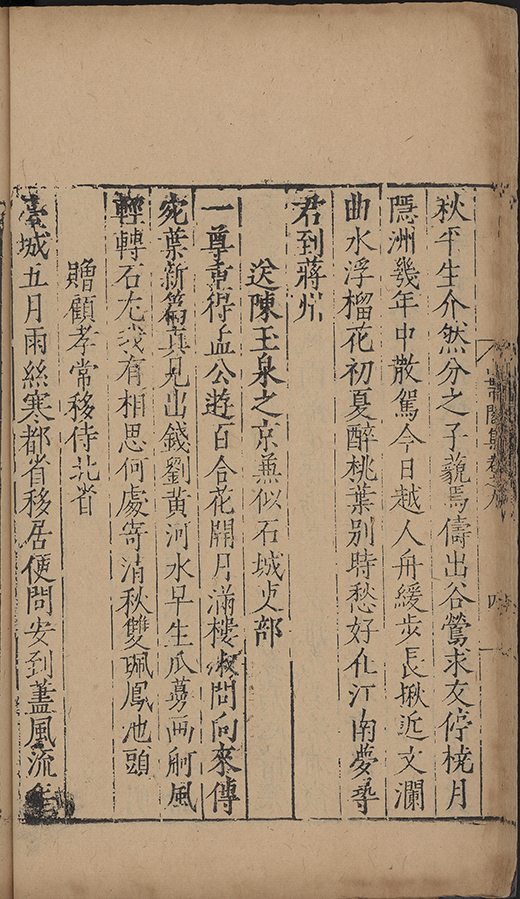 秋平生介然分之子藐焉儔出谷鶯求友停橈月
隱洲幾年中散駕今日越人舟緩步長楸近文瀾
曲水浮榴花初夏醉桃葉別時愁好在汀南夢尋
君到蔣州
送陳玉泉之京兼似石城吏部
一尊重得孟公遊百合花開月滿樓淑問向來傳
宛葉新篇真見出錢劉黃河水早生瓜蔓西舸風
輕轉石尤我有相思何處寄清秋雙珮鳳池頭
贈顧孝常移侍北省
臺城五月雨絲寒都省移居便問安到蓋風流
集卷之八